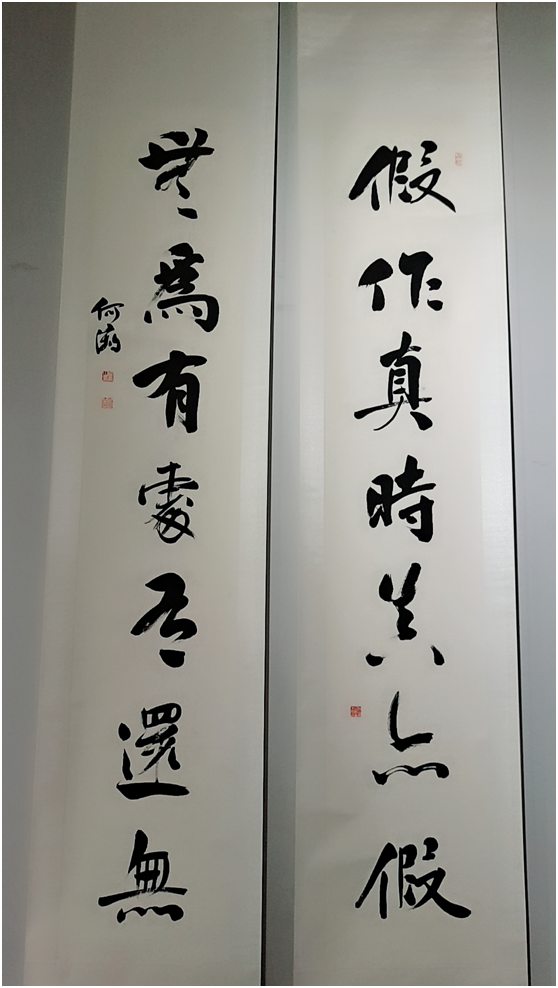 假作真時真亦假
無為有處有還無
何